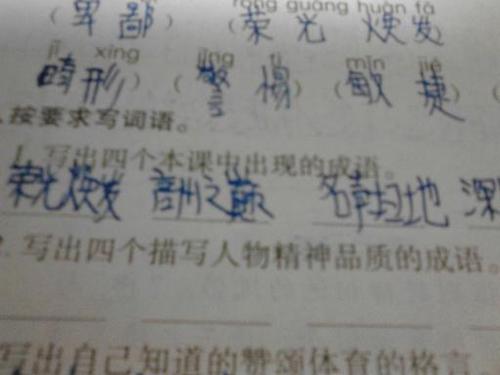 róng guāng huàn fā
(卑鄙) (荣光焕发
jī xíng jǐng tì mǐn jié
畸形) (警惕) (敏捷) (
.按要求写词语。
1. 写出四个本课中出现的成语。
荣光焕发 州之巅 扫地 深
. 写出四个描写人物精神品质的成语。
写出自己知道的赞颂体育的格言